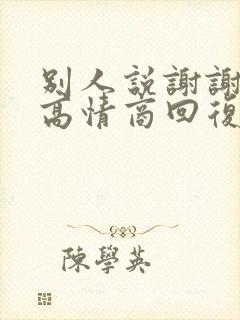 别人説謝謝
高情商回復
陳學英